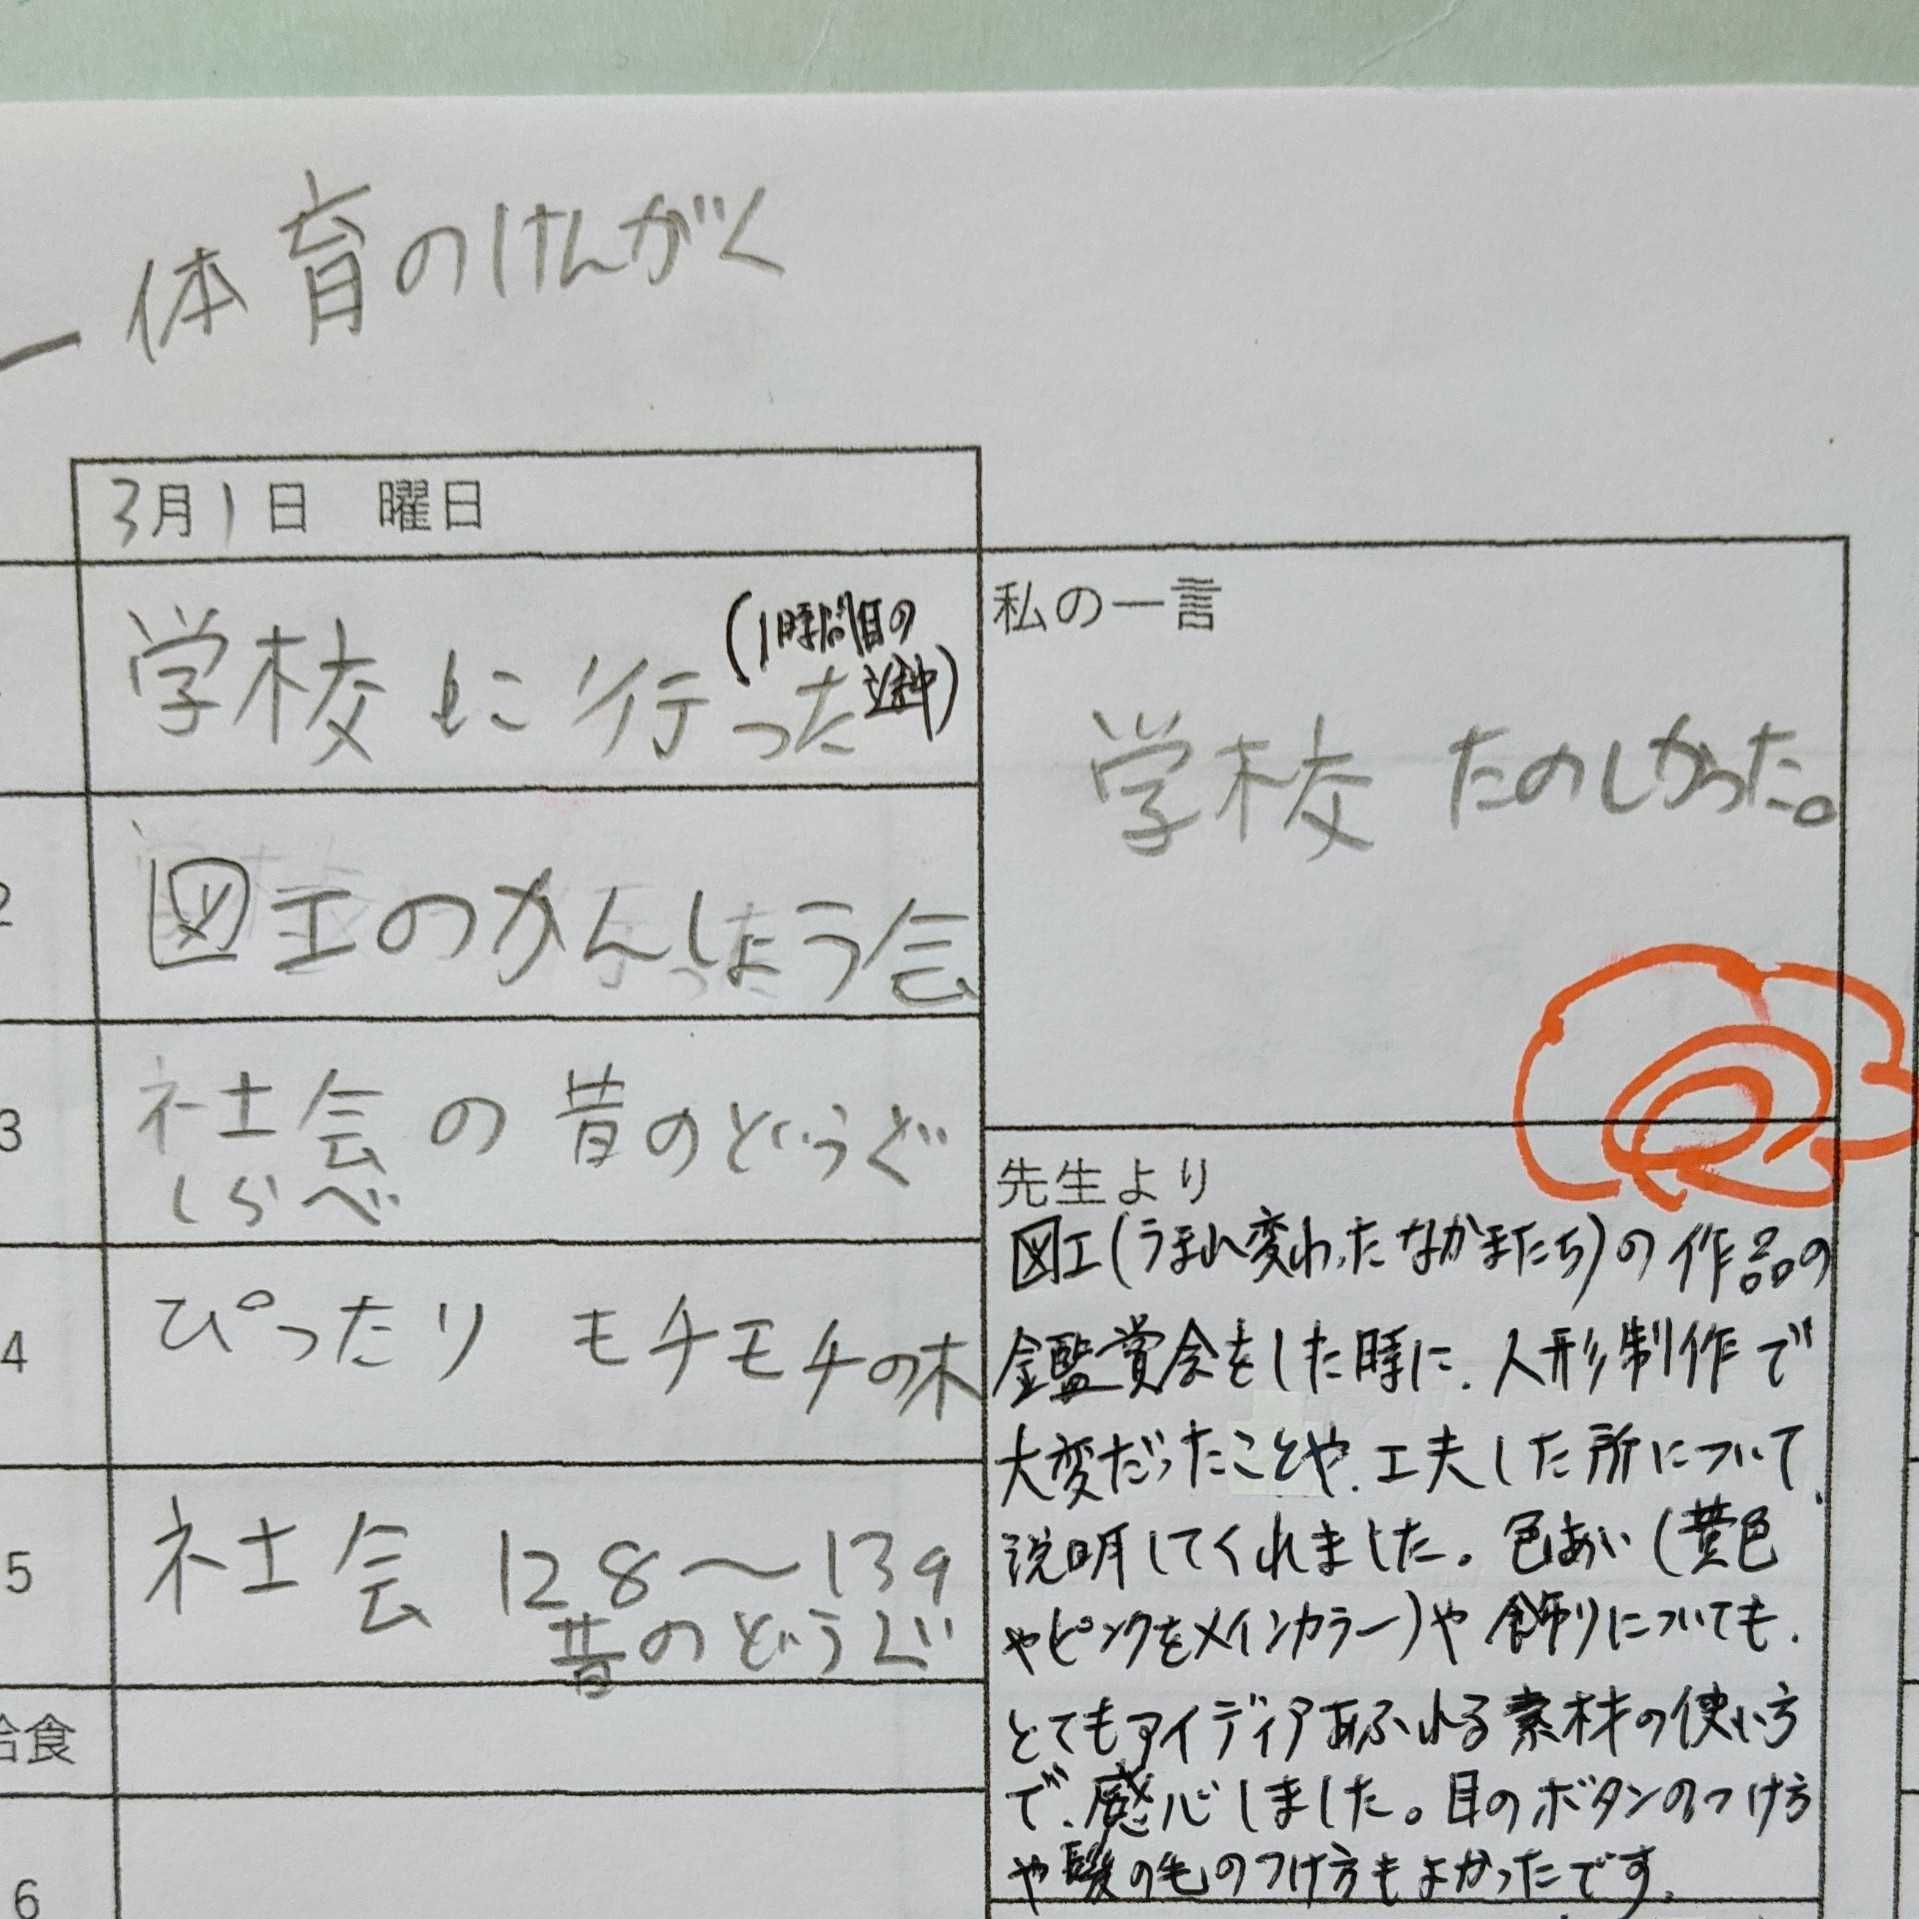 体育のけんがく
3月1日 曜日
学校に行った(1時間目の
途中)
2
図工のかんしょう会
3
社会の昔のどうぐ
しらべ
4
ぴったり モチモチの木
5
社会 128〜139
昔のどうぐ
給食
6
私の一言
学校 たのしかった。
先生より
図工(うまれ変わったなかまたち)の作品の
鑑賞会をした時に、人形制作で
大変だったことや、工夫した所について、
説明してくれました。色あい(黄色
やピンクをメインカラー)や飾りについても、
とてもアイディアあふれる素材の使い方
で、感心しました。目のボタンのつけ方
や髪の毛のつけ方もよかったです。